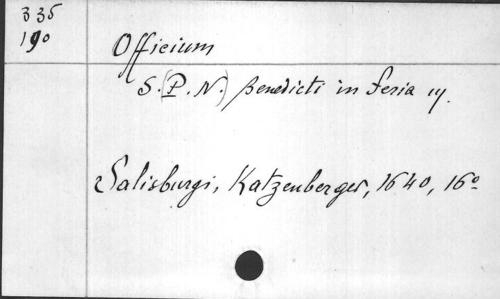 335
190
Officium
S. (P. N.) Benedicti in feria ij.
Salisburgi, Katzenberger, 1640, 16º